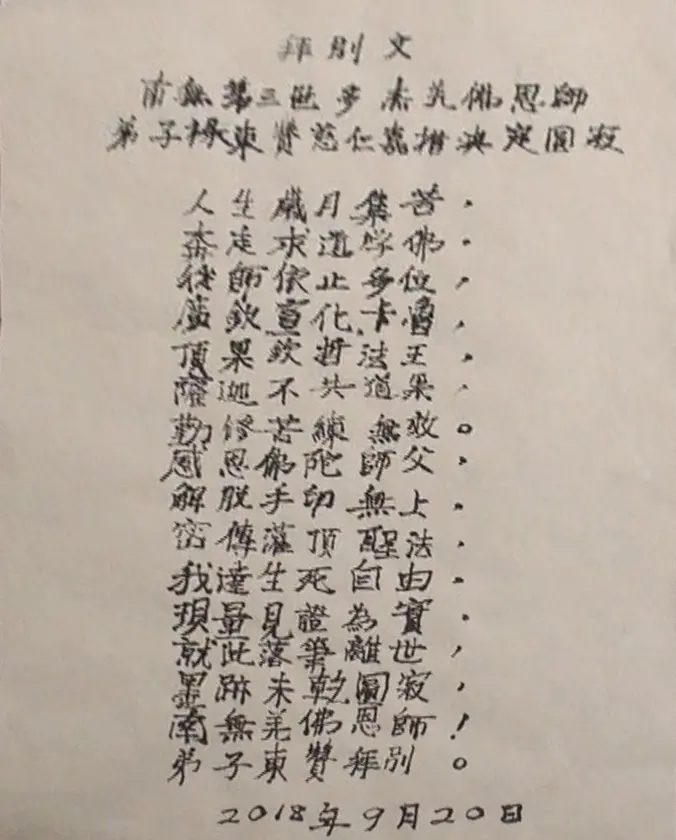 拜别文
南無第三世多杰羌佛恩師
弟子楊東贊慈仁嘉措決定圓寂
人生歲月集苦，
奔走求道学佛。
後師依止多位，
廣欽宣化卡魯，
頂果欽哲法王，
薩迦不共道果，
勤修苦練無效。
感恩佛陀師父，
解脱手印無上，
密傳灌頂醒法，
我達生死自由，
現量見證為實，
就此落筆離世，
墨跡未乾圓寂，
南無羌佛恩師！
弟子東贊拜别。
2018年9月20日